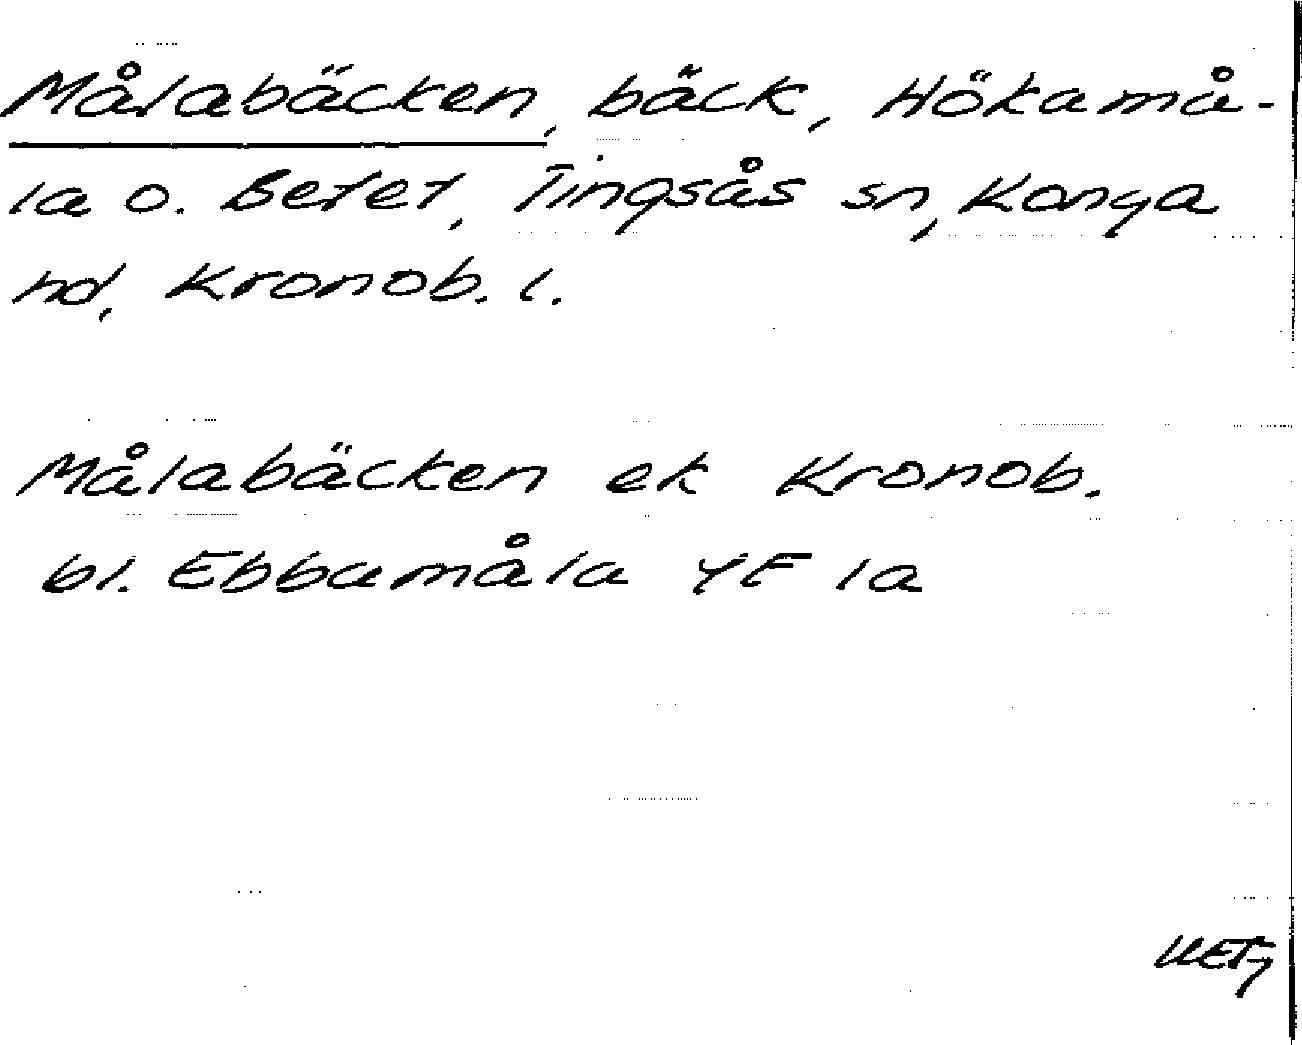 Målabäcken, bäck, Hökamå-
la o. Betet, Tingsås sn, Konga
hd, Kronob. l.
Målabäcken ek Kronob.
bl. Ebbamåla 4E 1a